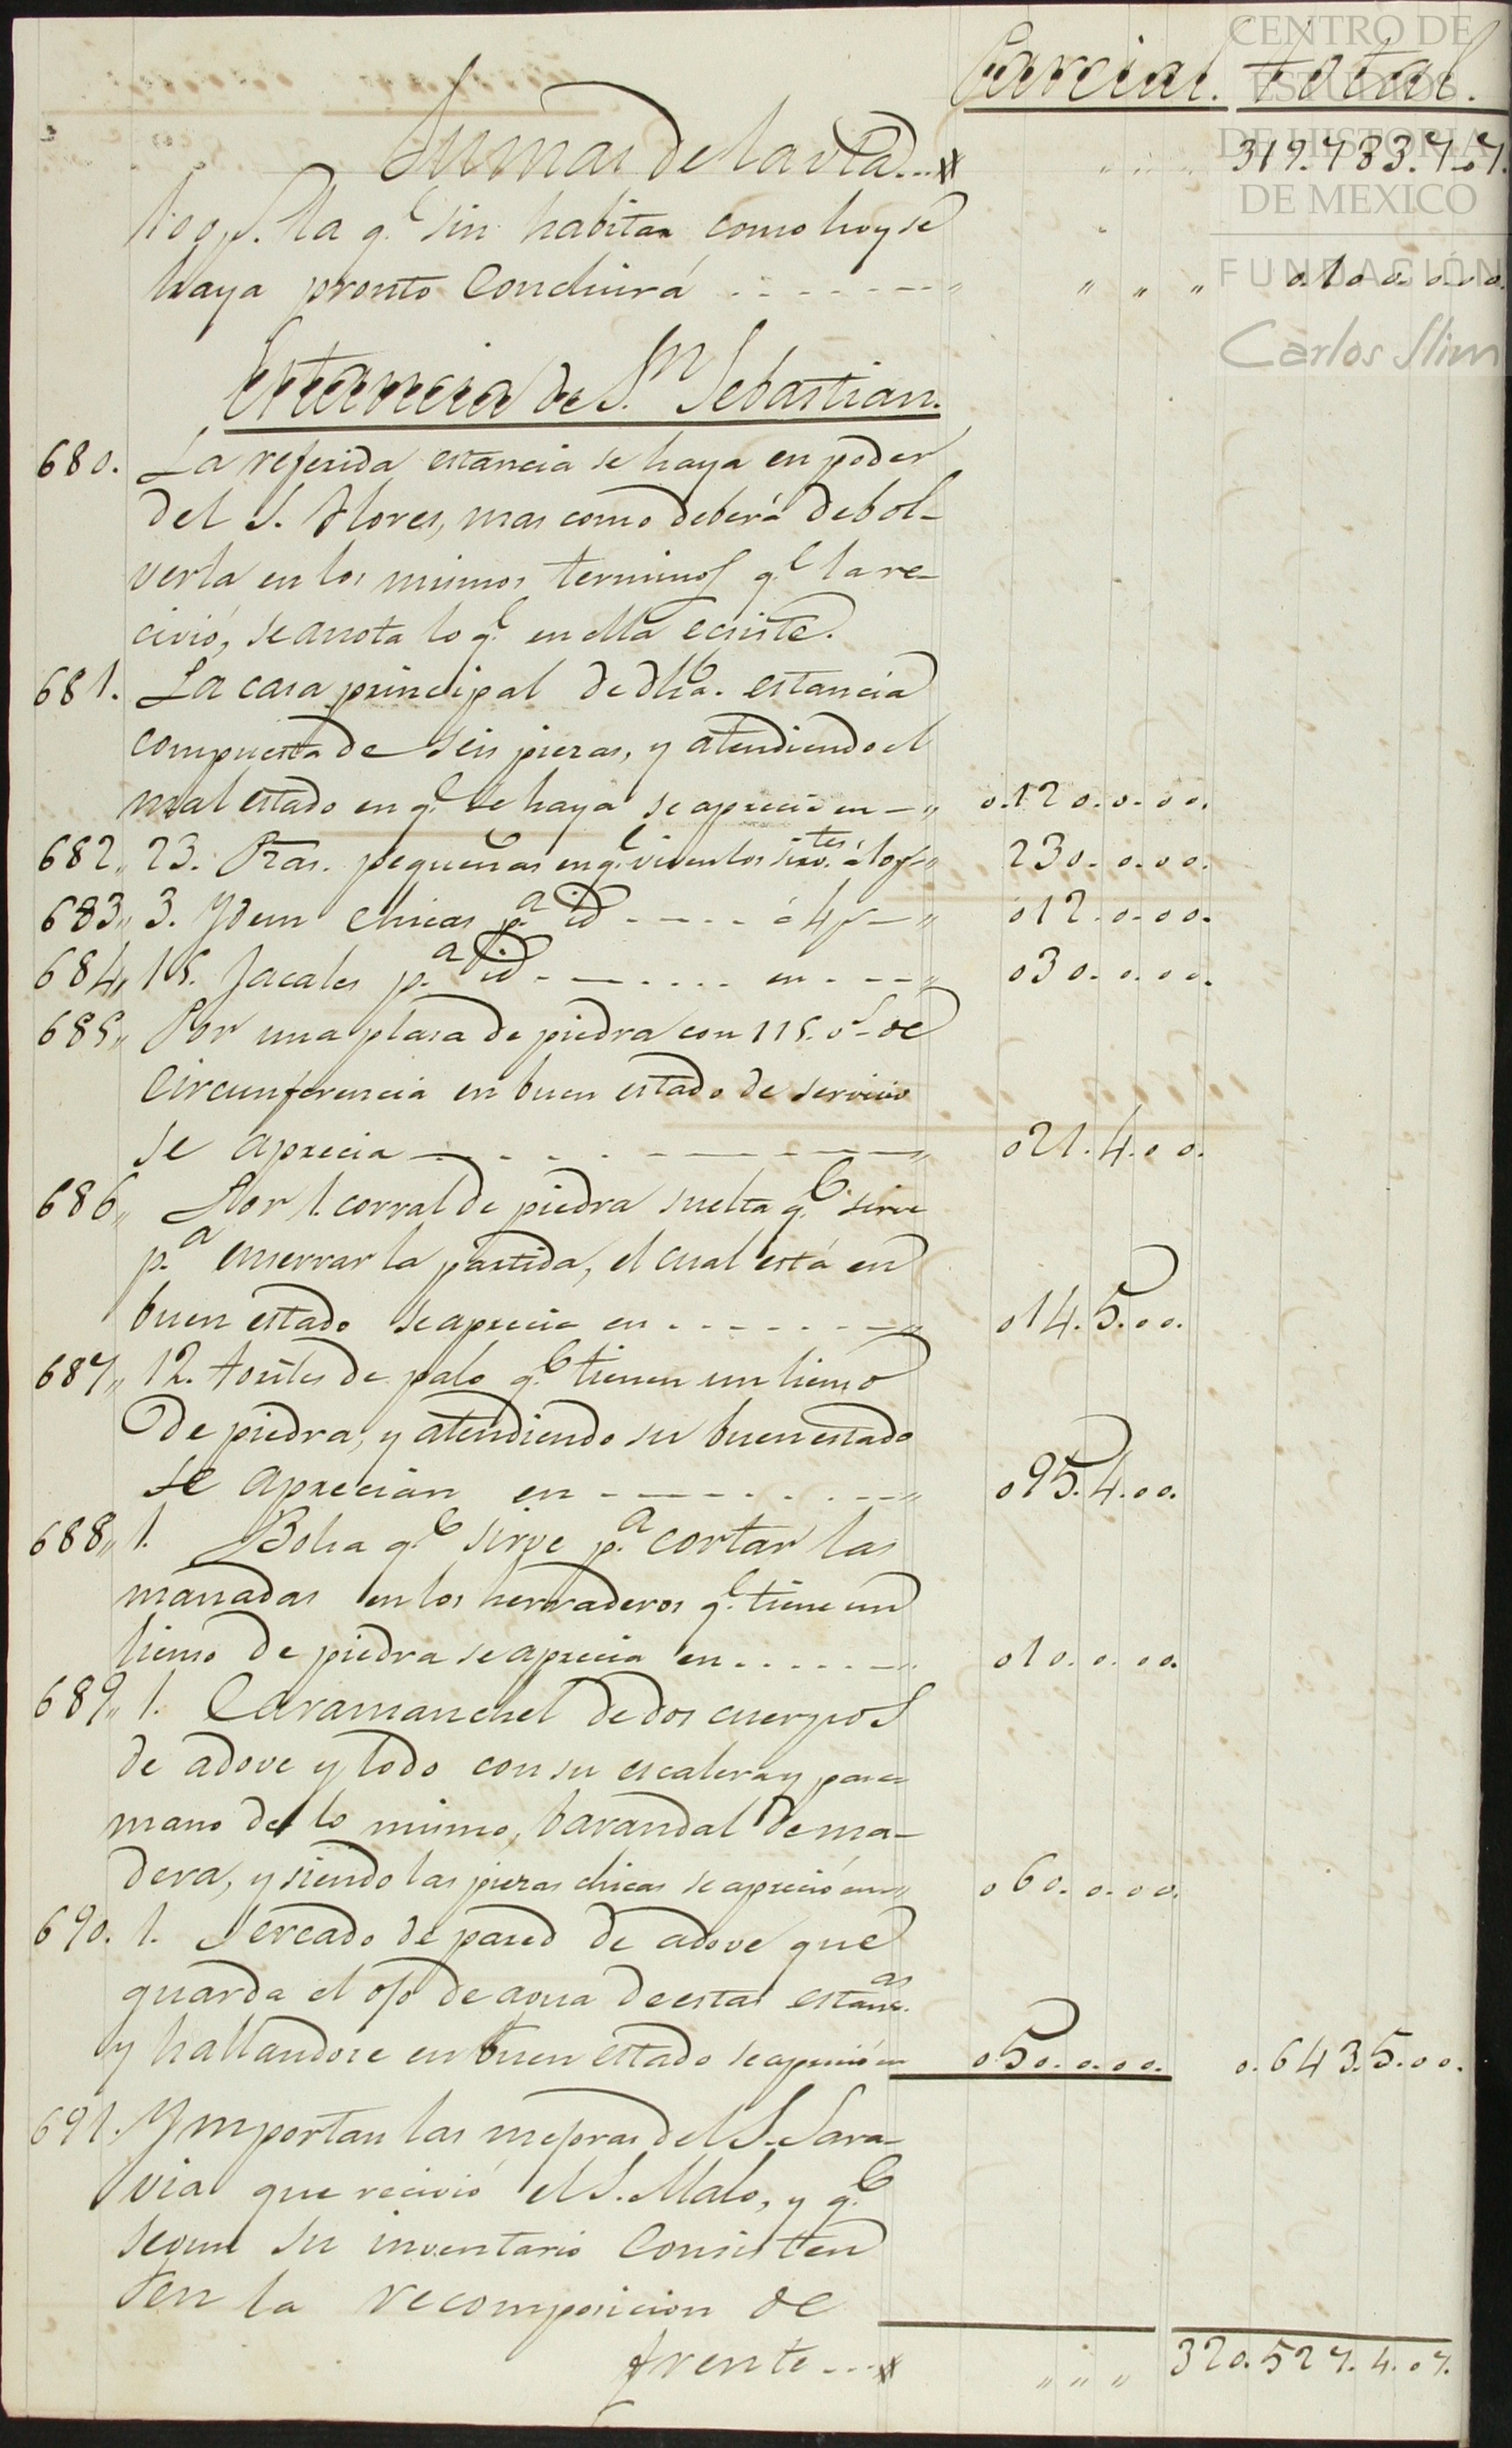 Parcial. total.
Sumas de la vta... 319.783.7.07.
100 p.s la q.e sin habitar como hoy se
haya pronto Concluirá - - - - - - " " " " 0.100.0.00.
Estancia de S.n Sebastian.
680. La referida estancia se haya en poder
del S. Flores, mas como deberá debol-
verla en los mismos terminos q.e la re-
civió, se anota lo q.e en ella ecsiste.
681. La casa principal de dha. estancia
compuesta de seis piezas, y atendiendo el
mal estado en q.e se haya se aprecia en - " 0.120.0.00.
682,, 23. Pzas. pequeñas en q.e viven los sirv.tes á 10 p.s " 230.0.00.
683,, 3. Ydem chicas p.a id - - - - á 4 p.s - " 012.0.00.
684,, 15. Jacales p.a id - - - . . . . en - - - " 030.0.00.
685,, Por una plasa de piedra con 115. v.s de
Circunferencia en buen estado de servicio
se aprecia - - - - - - - " 021.4.00.
686,, Por 1. corral de piedra suelta q.e sirve
p.a enserrar la partida, el cual está en
buen estado se aprecia en - - - - - - " 014.5.00.
687,, 12. toriles de palo q.e tienen un lienso
de piedra, y atendiendo su buen estado
se aprecian en - - - - - - " 095.4.00.
688,, 1. Bolsa q.e sirve p.a cortar las
manadas en los herraderos q.e tiene un
lienso de piedra se aprecia en . . . . . - " 010.0.00.
689,, 1. Caramanchel de dos cuerpos
de adove y lodo con su escalera y pasa
mano de lo mismo, barandal de ma-
dera, y siendo las piezas chicas se apreció en " 060.0.00.
690. 1. Sercado de pared de adove que
guarda el ojo de agua de estas estanc.as
y hallandose en buen estado se apreció en 050.0.00. 0.643.5.00.
691. Ymportan las mejoras del S. Sara-
via que recivió el S. Malo, y q.e
segun su inventario Consisten
en la recomposicion de
frente... " " " 320.527.4.07.
CENTRO DE
ESTUDIOS
DE HISTORIA
DE MEXICO
FUNDACIÓN
Carlos Slim